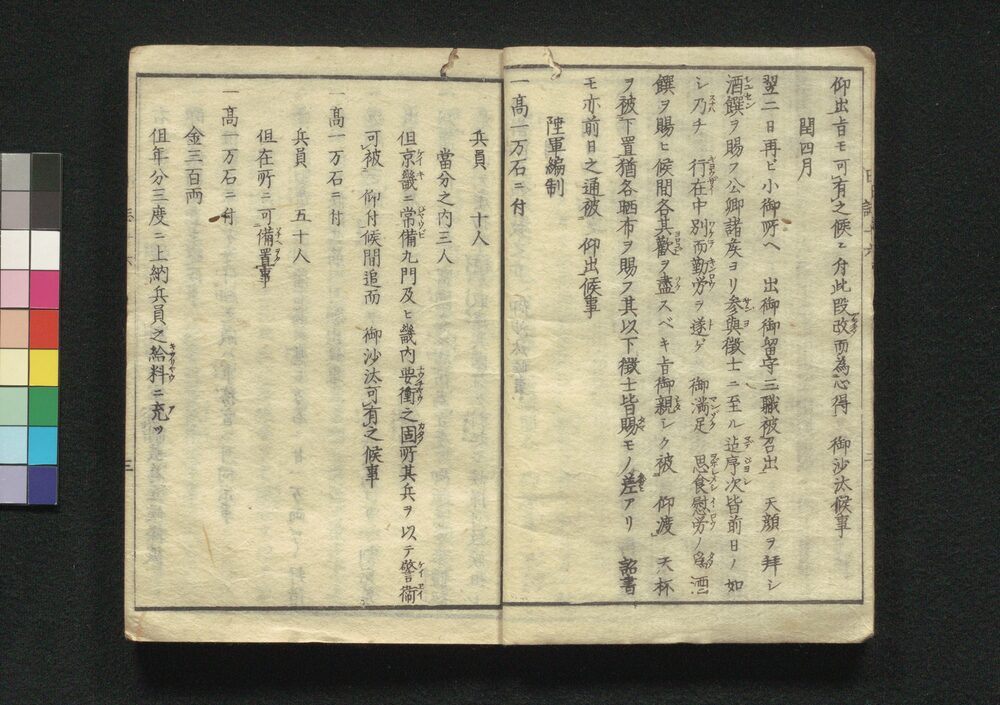 仰出旨モ可有之候ニ付此段改而為心得　御沙汰候事
閏四月
翌二日再ビ小御所ヘ　出御御留守三職被召出　天顔ヲ拝シ
酒饌ヲ賜フ公卿諸侯ヨリ参與徴士ニ至ル迠序次皆前日ノ如
シ乃チ　行在中別而勤労ヲ遂ゲ　御満足　思食慰労ノ為酒
饌ヲ賜ヒ候間各其歡ヲ盡スベキ旨御親シク被　仰渡　天杯
ヲ被下置猶各晒布ヲ賜フ其以下徴士皆賜モノ差アリ　詔書
モ亦前日之通被　仰出候事
陸軍編制
一高一万石ニ付
兵員　十人
當分之内三人
但京畿ニ常備九門及ヒ畿内要衝之固所其兵ヲ以テ警衞
可被　仰付候間追而　御沙汰可有之候事
一高一万石ニ付
兵員　五十人
但在所ニ可備置事
一高一万石ニ付
金三百両
但年分三度ニ上納兵員之給料ニ充ツ